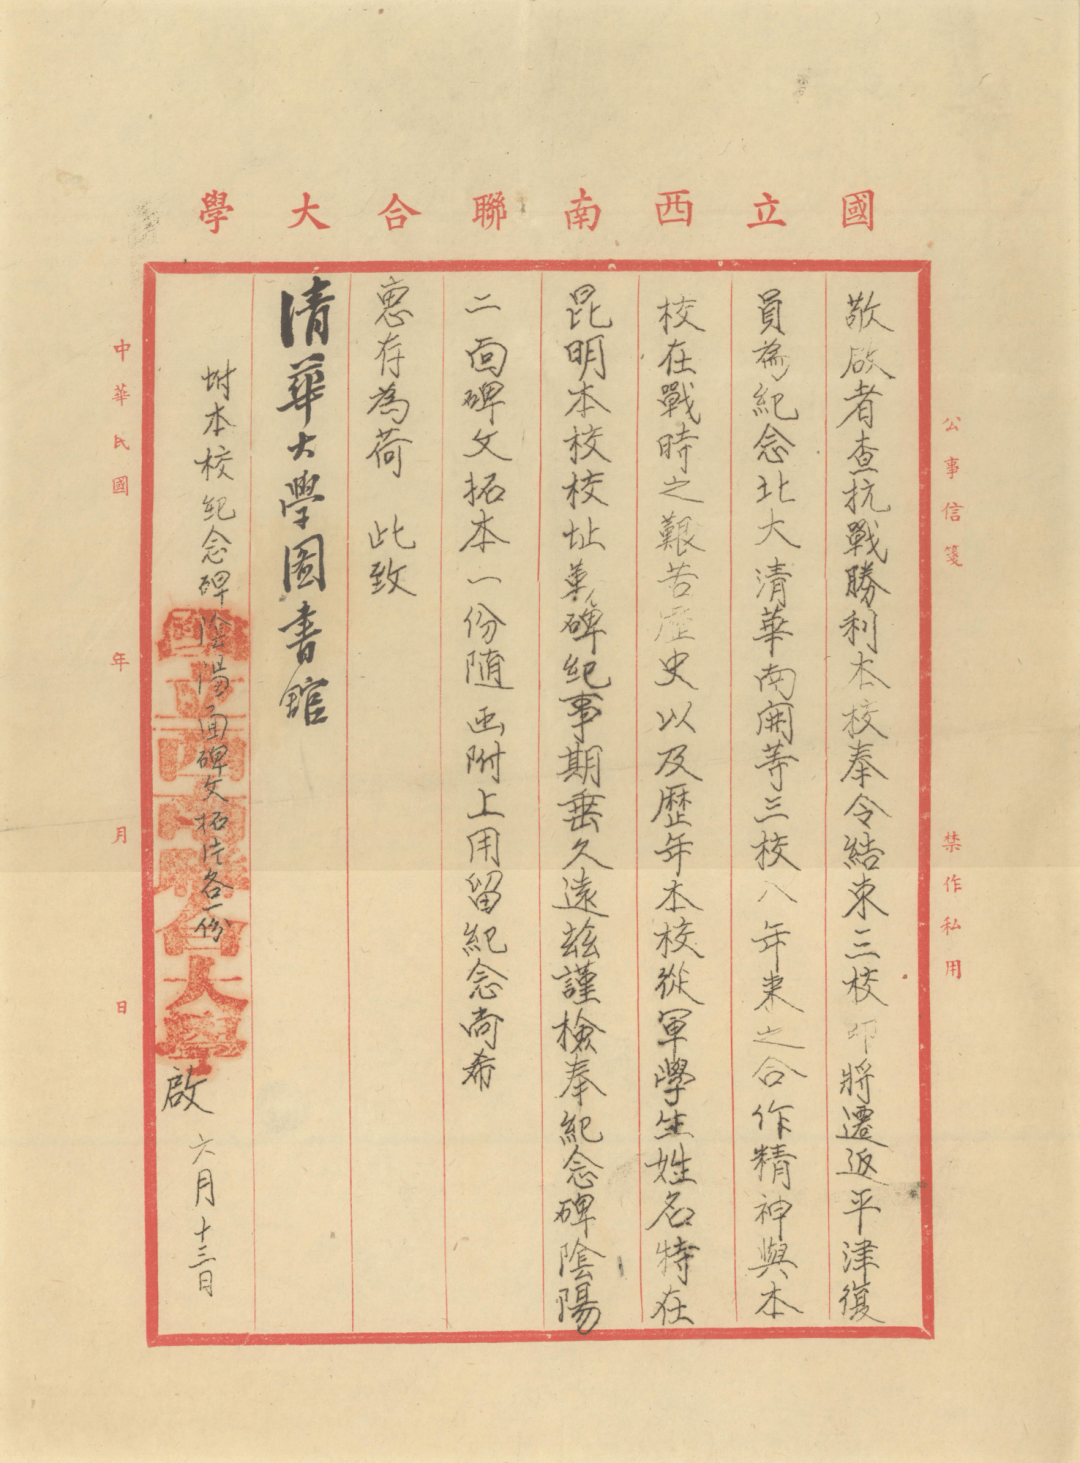 國立西南聯合大學
公事信箋 禁作私用
敬啟者查抗戰勝利本校奉令結束三校即將遷返平津復
員為紀念北大清華南開等三校八年來之合作精神與本
校在戰時之艱苦歷史以及歷年本校從軍學生姓名特在
昆明本校校址建碑紀事期垂久遠茲謹檢奉紀念碑陰陽
二面碑文拓本一份隨函附上用留紀念尚希
惠存為荷 此致
清華大學圖書館
附本校紀念碑陰陽面碑文拓片各一份
國立西南聯合大學
啟 六月十三日
中華民國 年 月 日